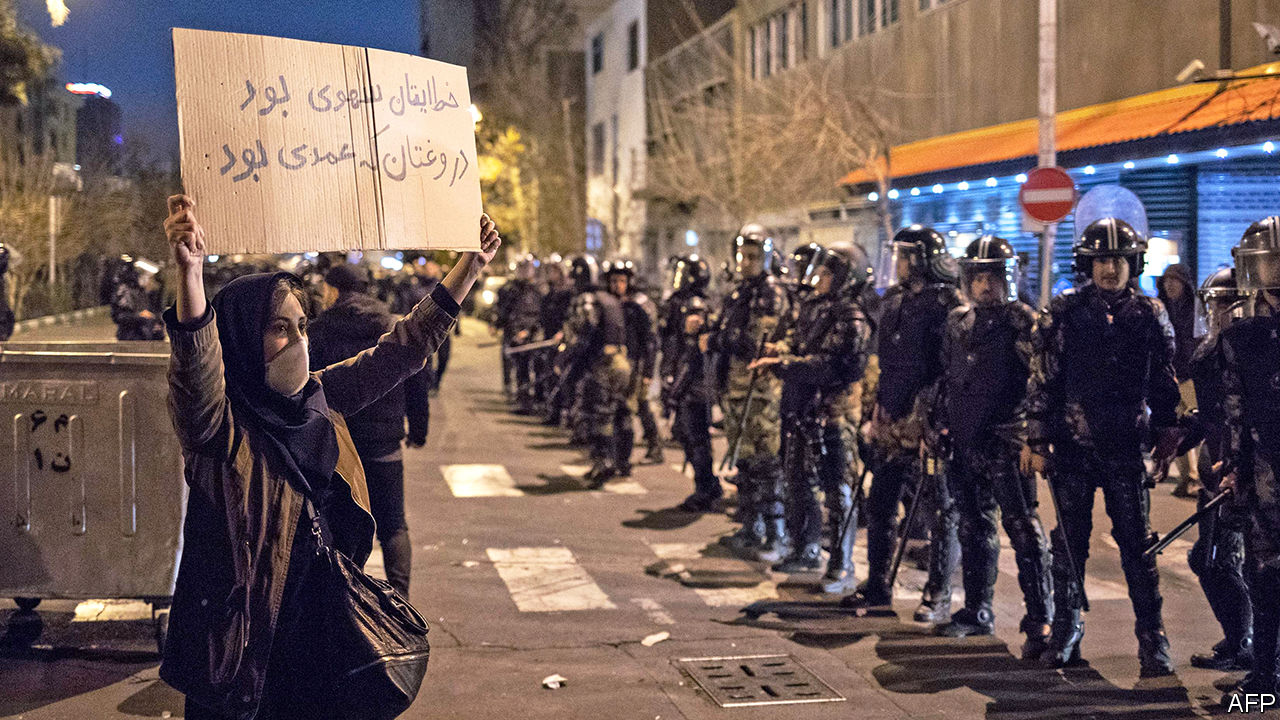 خطایتان سهوی بود
دروغتان که عمدی بود
MAPAL
۶۳
۱۵
AFP